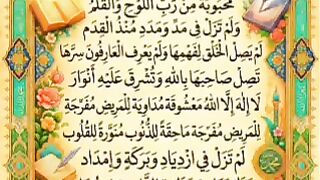 مَحْبُوبَةٌ مِنْ رَبِّ اللَّوْحِ وَالْقَلَمْ
وَلَمْ تَزَلْ فِي مَدٍّ وَمَدَدٍ مُنْذُ الْقِدَمِ
لَمْ يَصِلِ الْخَلْقُ لِفَهْمِهَا وَلَمْ يَعْرِفِ الْعَارِفُونَ سِرَّهَا
تَصِلُ صَاحِبَهَا بِاللهِ وَتُشْرِقُ عَلَيْهِ أَنْوَارَ
لَا إِلَهَ إِلَّا اللهُ مَعْشُوقَةٌ مُدَاوِيَةٌ لِلْمَرِيضِ مُفَرِّجَةٌ
لِلْمَرِيضِ مُفَرِّجَةٌ مَاحِقَةٌ لِلذُّنُوبِ مُنَوِّرَةٌ لِلْقُلُوبِ
لَمْ تَزَلْ فِي ازْدِيَادٍ وَبَرَكَةٍ وَإِمْدَادٍ